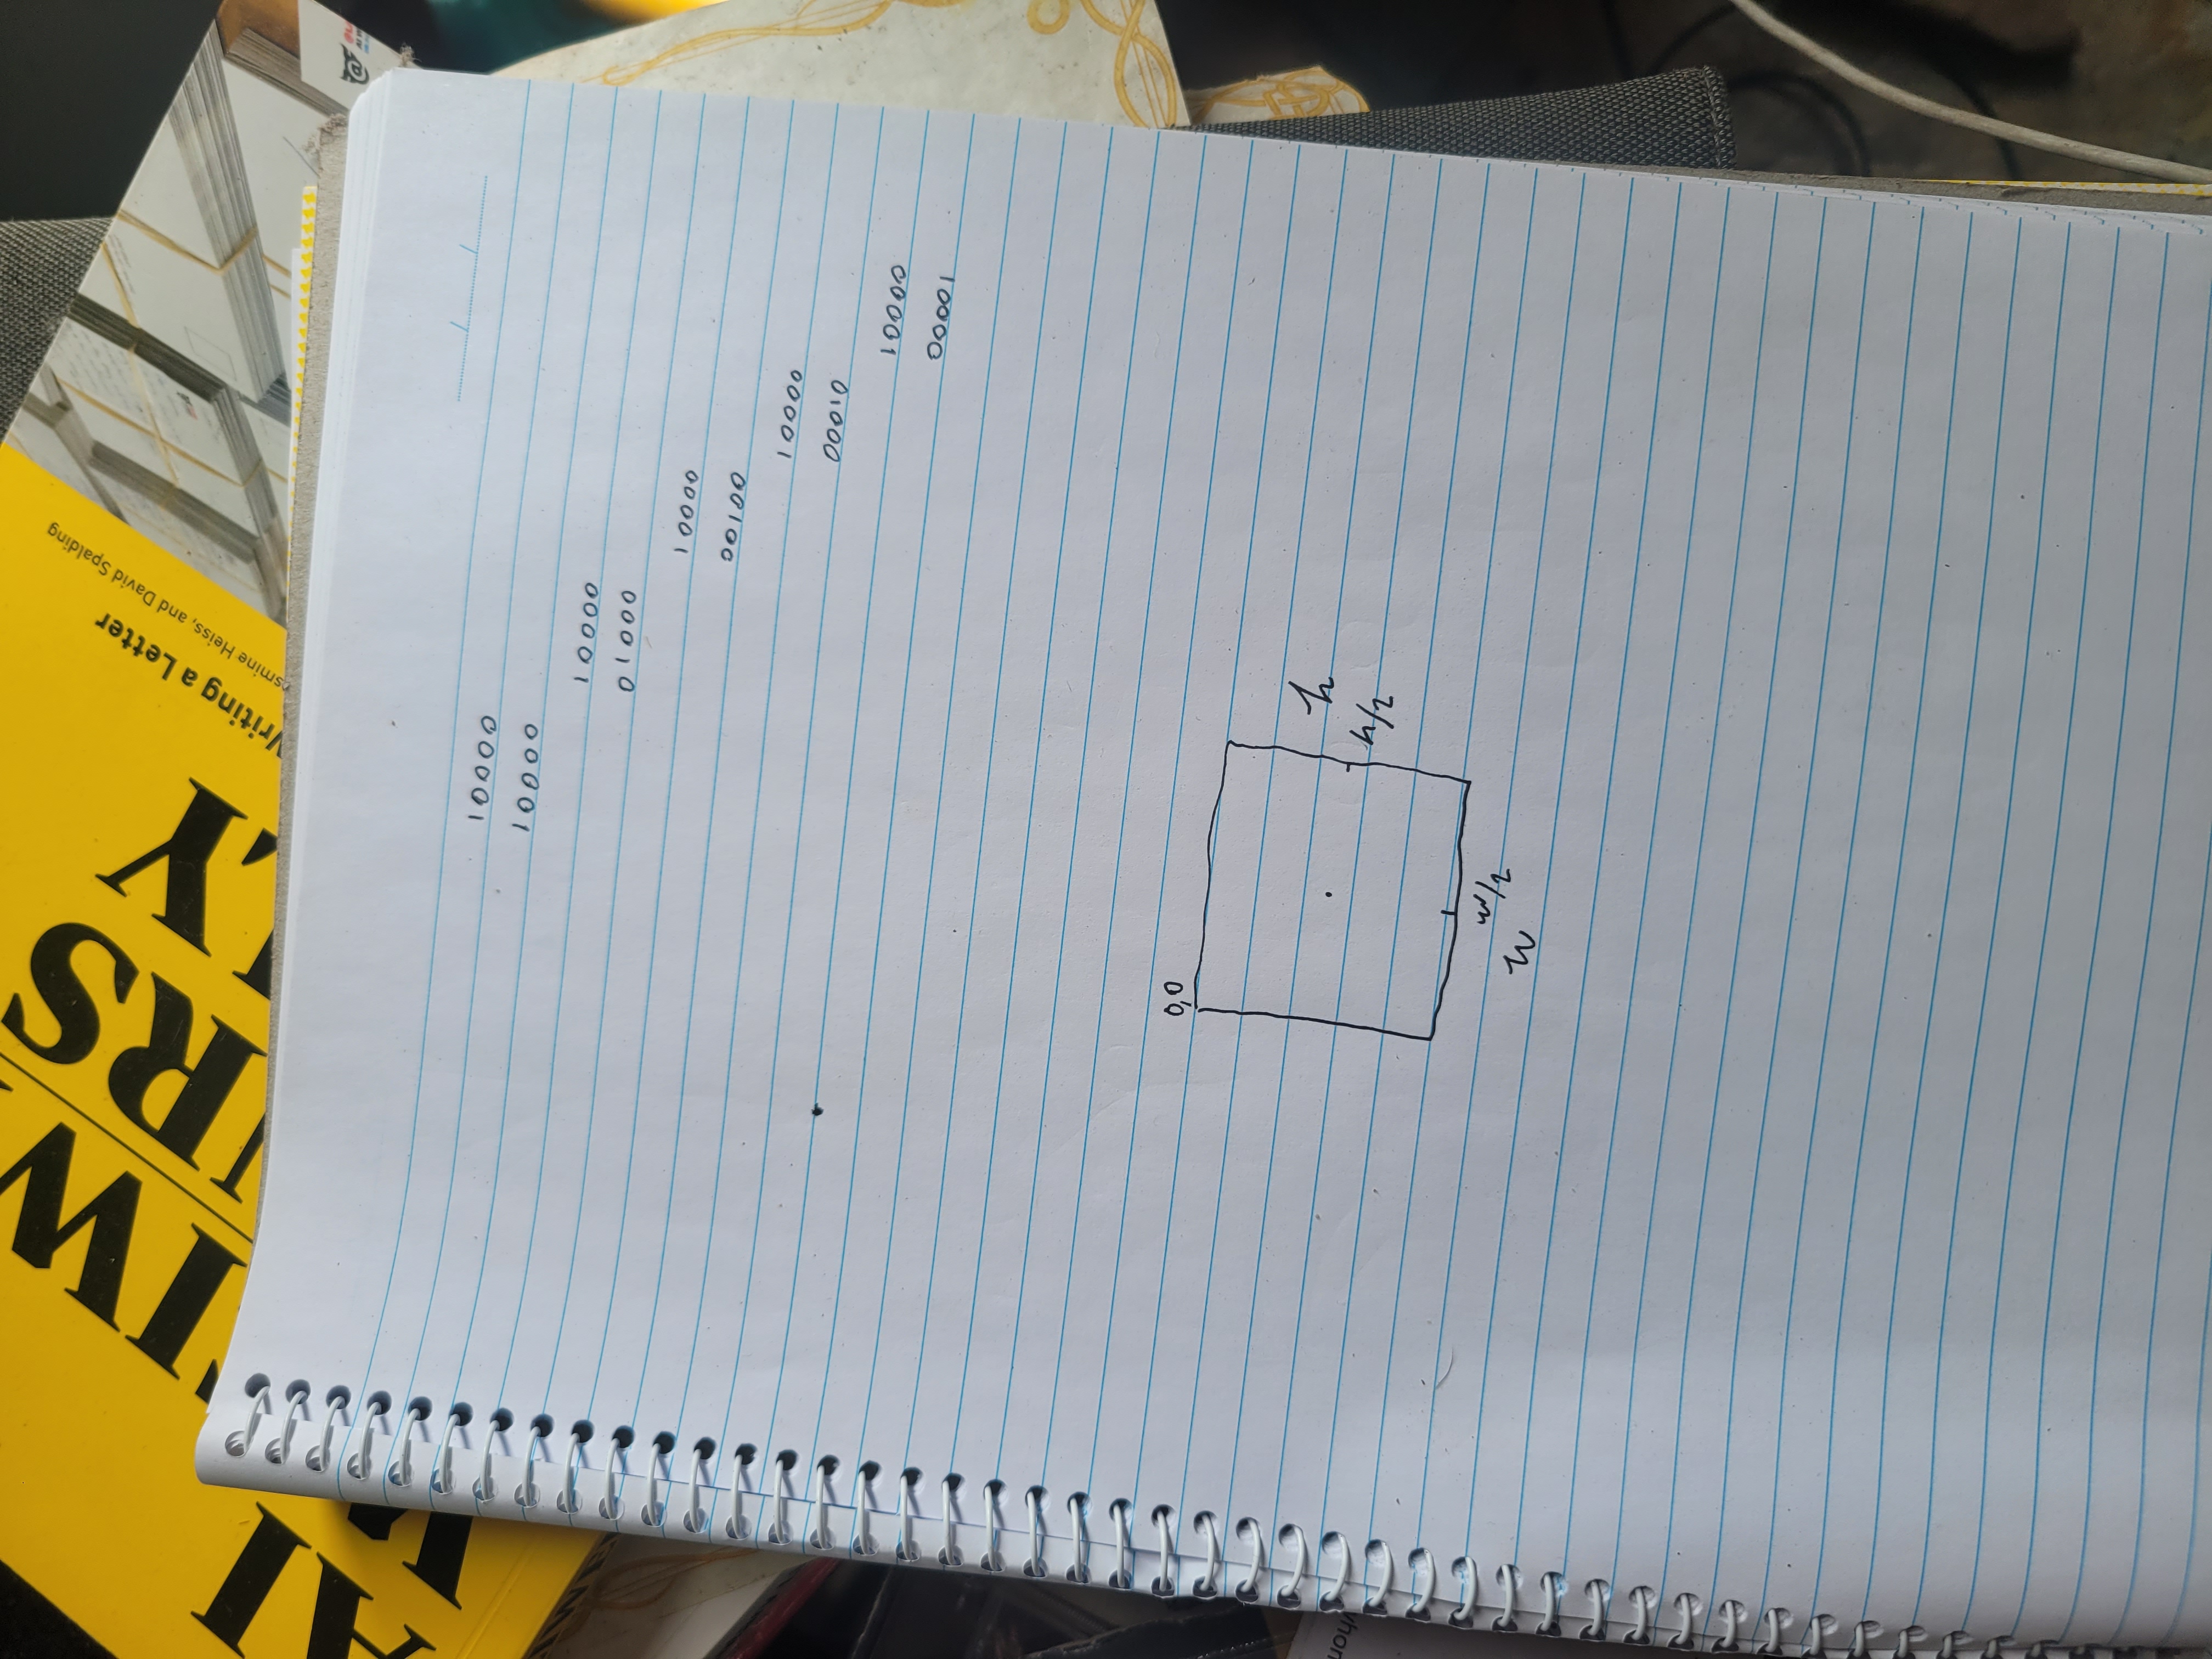 AI
W
IRS
LY
Writing a Letter
smine Heiss, and David Spalding
@
10000
10000
10000
01000
10000
00100
10000
00010
10000
00001
0,0
h
h/2
w/2
w